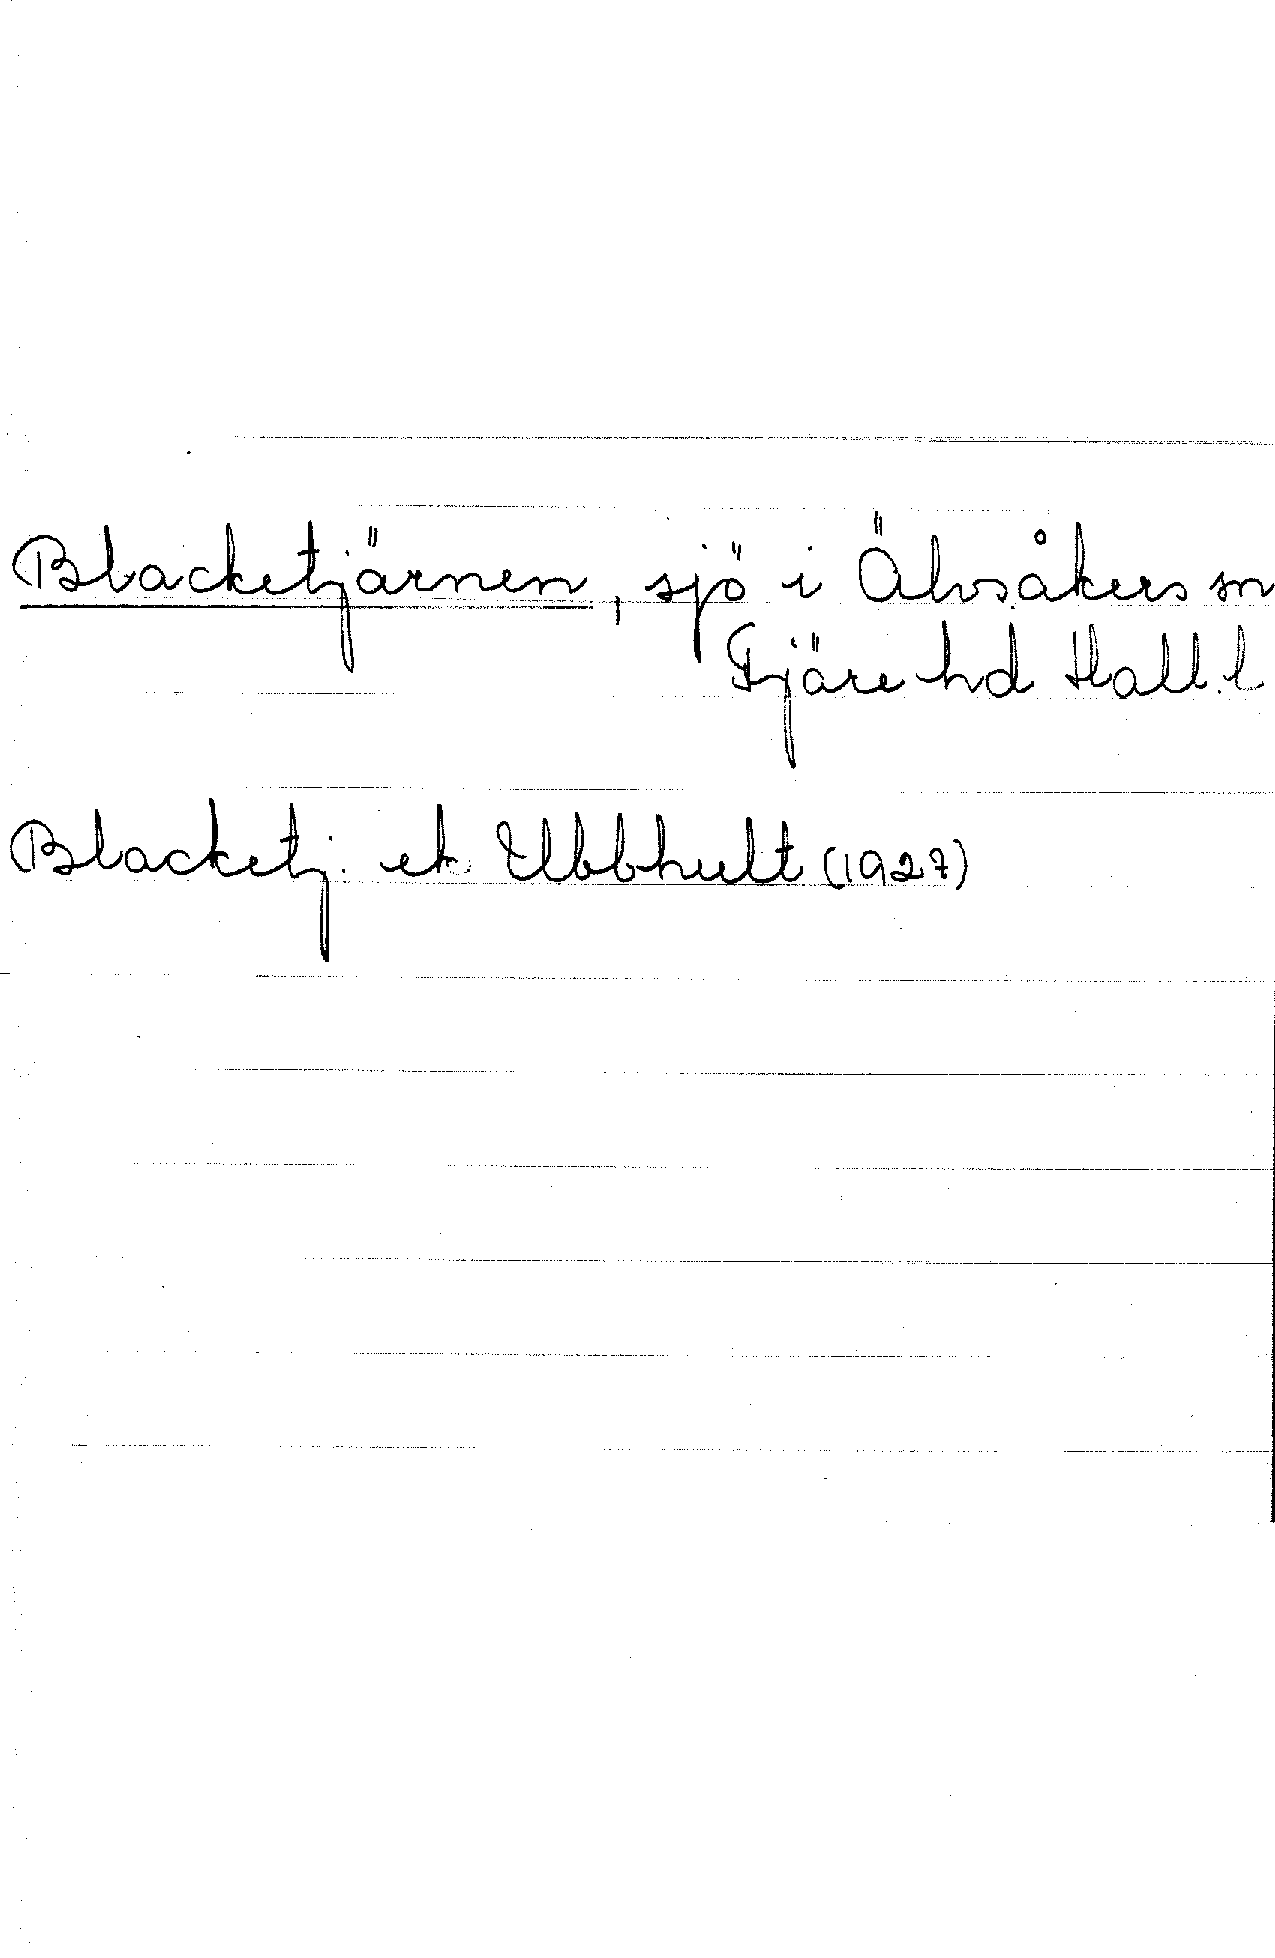 Blacketjärnen, sjö i Älvsåkers sn
Fjäre hd Hall. l
Blacketj. ek Ubbhult (1927)